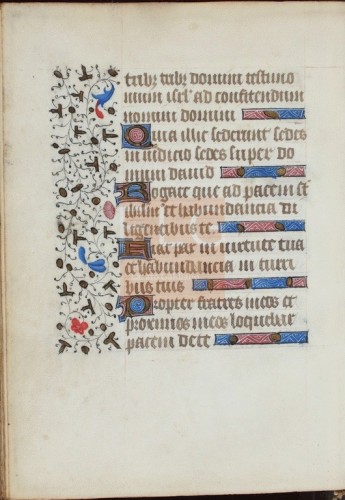 tribꝰ tribꝰ domini testimo
nium isrl̄ ad confitendum
nomini domini
Quia illic sederunt sedes
in iudicio sedes super do
mum dauid
Rogate que ad pacem st̄
ihrlm̄ et habundancia di
ligentibus te
Fiat pax in uirtute tua
et habundancia in turri
bus tuis
Propter fratres meos et
proximos meos loquebar
pacem de te